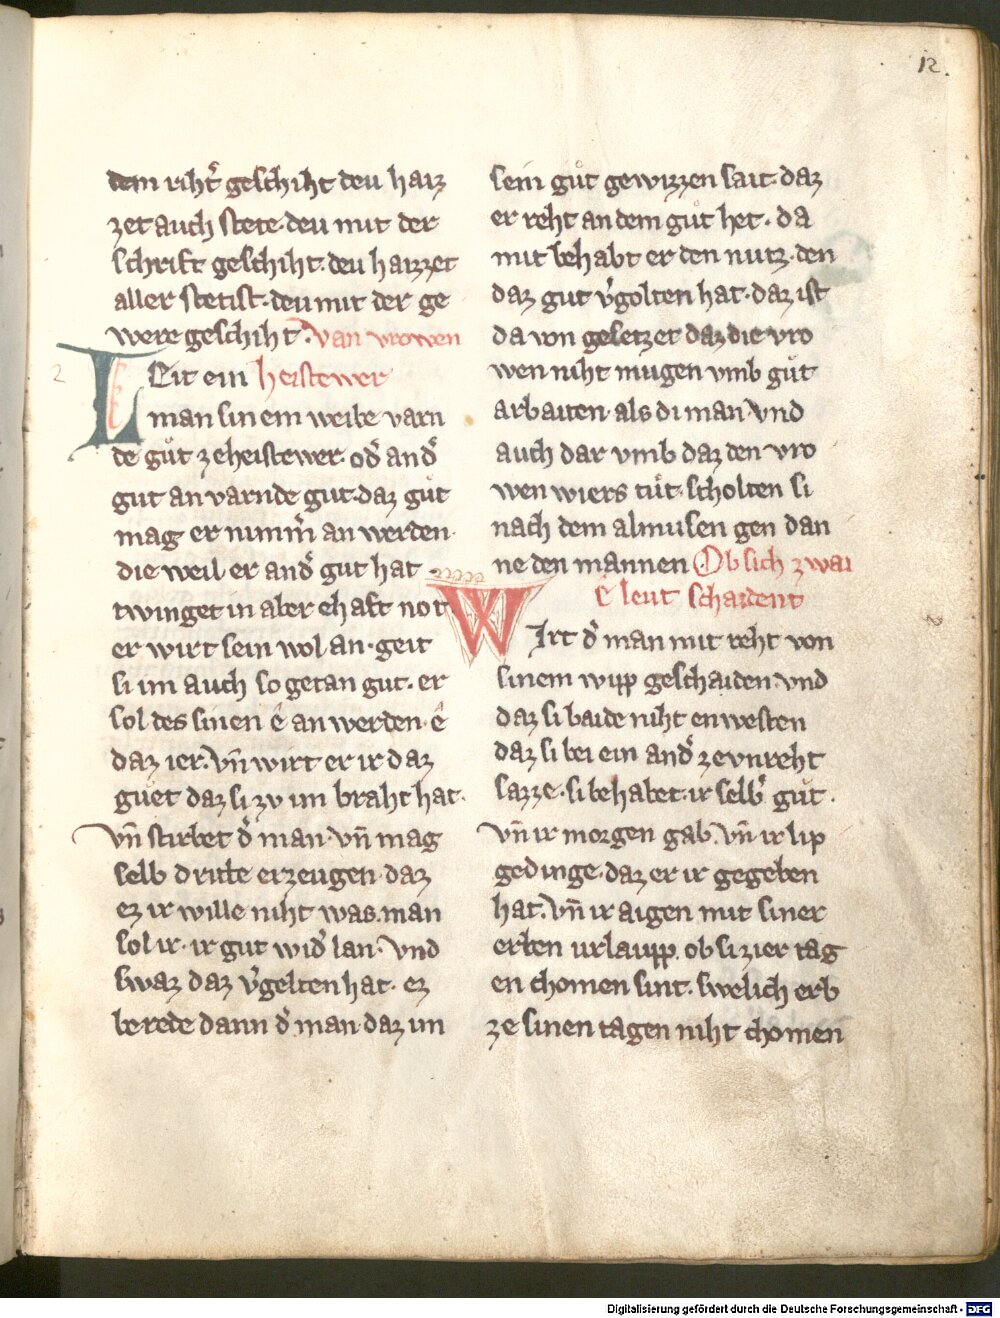 12.
dem riht̃ geschiht deu haiz
zet auch stete· deu mit der
schrift geschiht· deu haizzet
aller stetist· deu mit der ge
were geschiht· van vrowen
LEit ein heistewer
man sinem weibe varn
de gůt ze heistewer· od̾ and̾
gut an varnde gut· daz gůt
mag er nimm̾ an werden·
die weil er and̾ gut hat·
twinget in aber ehaft not·
er wirt sein wol an· geit
si im auch so getan gut· er
sol des sinen ê an werden· ê
daz ier· vn̄ wirt er ir daz
gůet daz si zv im braht hat·
vn̄ stirbet d̾ man· vn̄ mag
selb dritte erzeugen· daz
ez ir wille niht was· man
sol ir· ir gut wid̾ lan· vnd
swaz daz v̾gelten hat· ez
berede dann d̾ man· daz im
sein gůt gewizzen sait· daz
er reht an dem gůt het· da
mit behabt er den nutz· den
daz gut v̾golten hat· daz ist
da von gesetzet daz die vro
wen niht mugen vmb gůt
arbaiten· als di man vnd
auch dar vmb daz den vro
wen wiers tůt· scholten si
nach dem almusen gen dan
ne den mannen Ob sich zwai
E leut schaident
WIrt d̾ man mit reht von
sinem wipp geschaiden· vnd
daz si baide niht en westen
daz si bei ein and̾ ze vnreht
sazze· si behabet· ir selb̾ gůt·
vn̄ ir morgen gab· vn̄ ir lip
gedinge· daz er ir gegeben
hat· vn̄ ir aigen mit siner
erben urlaupp· ob si zier tag
en chomen sint· swelich erb
ze sinen tagen niht chomen
Digitalisierung gefördert durch die Deutsche Forschungsgemeinschaft - DFG